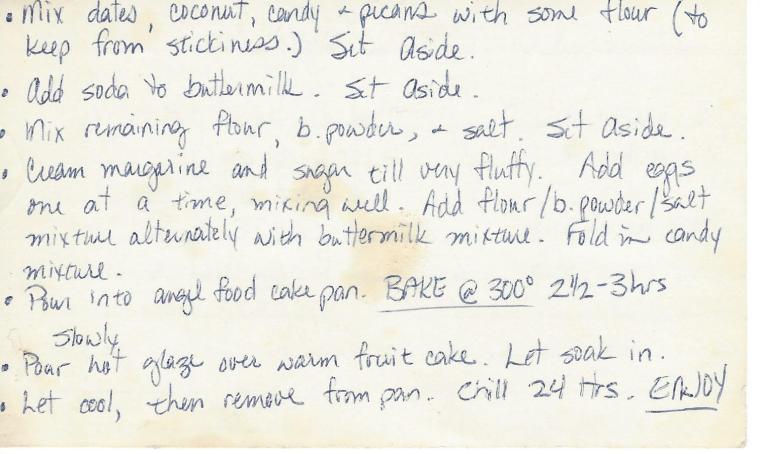 • Mix dates, coconut, candy + pecans with some flour (to
keep from stickiness.) Set Aside.
• Add soda to buttermilk. Set Aside.
• Mix remaining flour, b.powder, + salt. Set Aside.
• Cream margarine and sugar till very fluffy. Add eggs
one at a time, mixing well. Add flour/b.powder/salt
mixture alternately with buttermilk mixture. Fold in candy
mixture.
• Pour into angel food cake pan. BAKE @ 300° 2 1/2-3hrs
slowly
• Pour hot glaze over warm fruit cake. Let soak in.
• Let cool, then remove from pan. Chill 24 Hrs. ENJOY